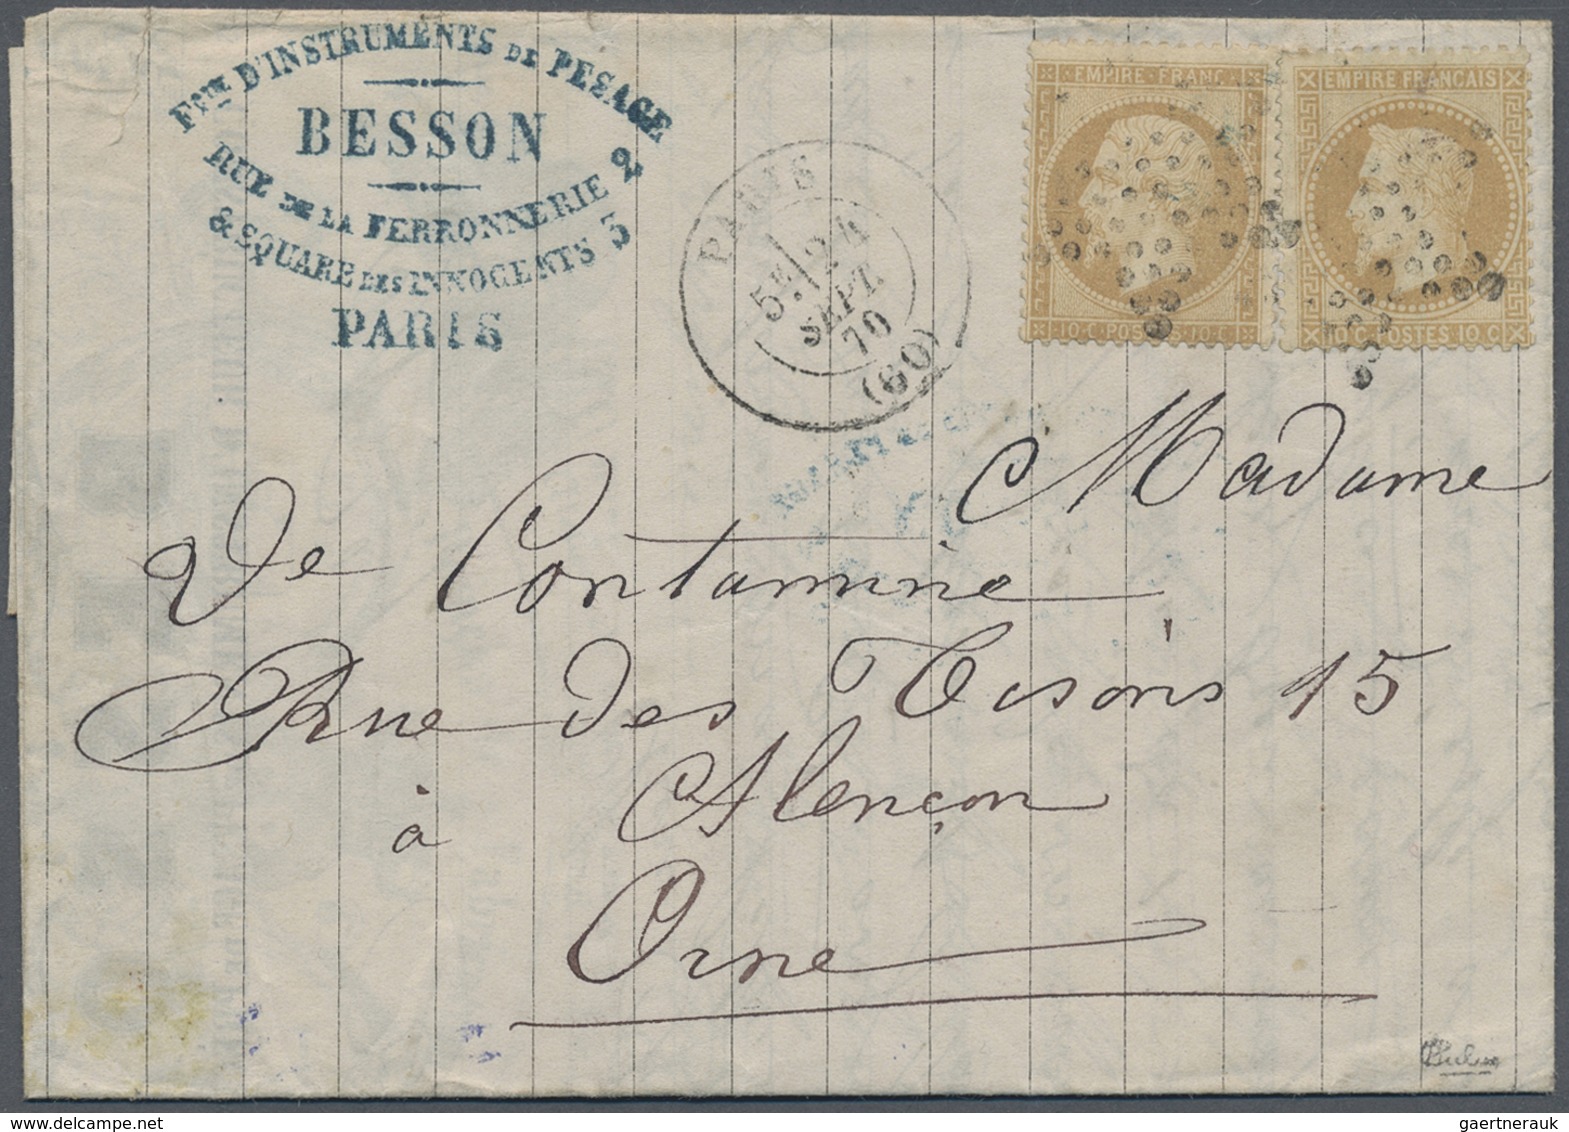 Fque D'INSTRUMENTS DE PESAGE
BESSON
RUE DE LA FERRONNERIE 2
& SQUARE DES INNOCENTS 3
PARIS
PARIS
5E 24
SEPT.
70
(60)
EMPIRE · FRANC.
10·C·POSTES·10·C·
EMPIRE FRANCAIS
10 C POSTES 10 C
Madame
De Contamine
Rue des Tisons 15
à Alençon
Orne
gaertnerauk